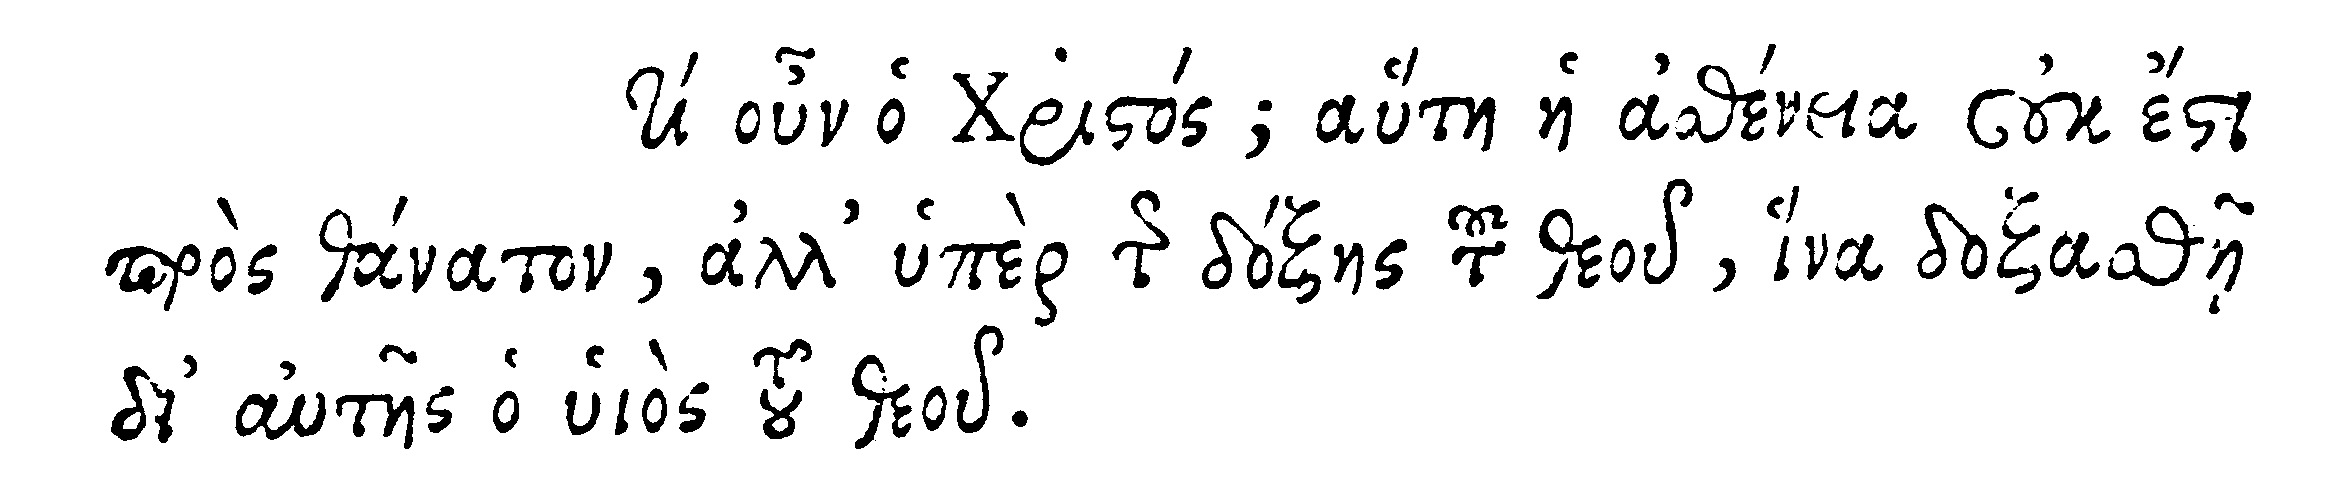 Τί οὖν ὁ Χριστός; αὕτη ἡ ἀσθένεια οὐκ ἔστι
πρὸς θάνατον, ἀλλ' ὑπὲρ τῆς δόξης τοῦ θεοῦ, ἵνα δοξασθῇ
δι' αὐτῆς ὁ ὑιὸς τοῦ θεοῦ.